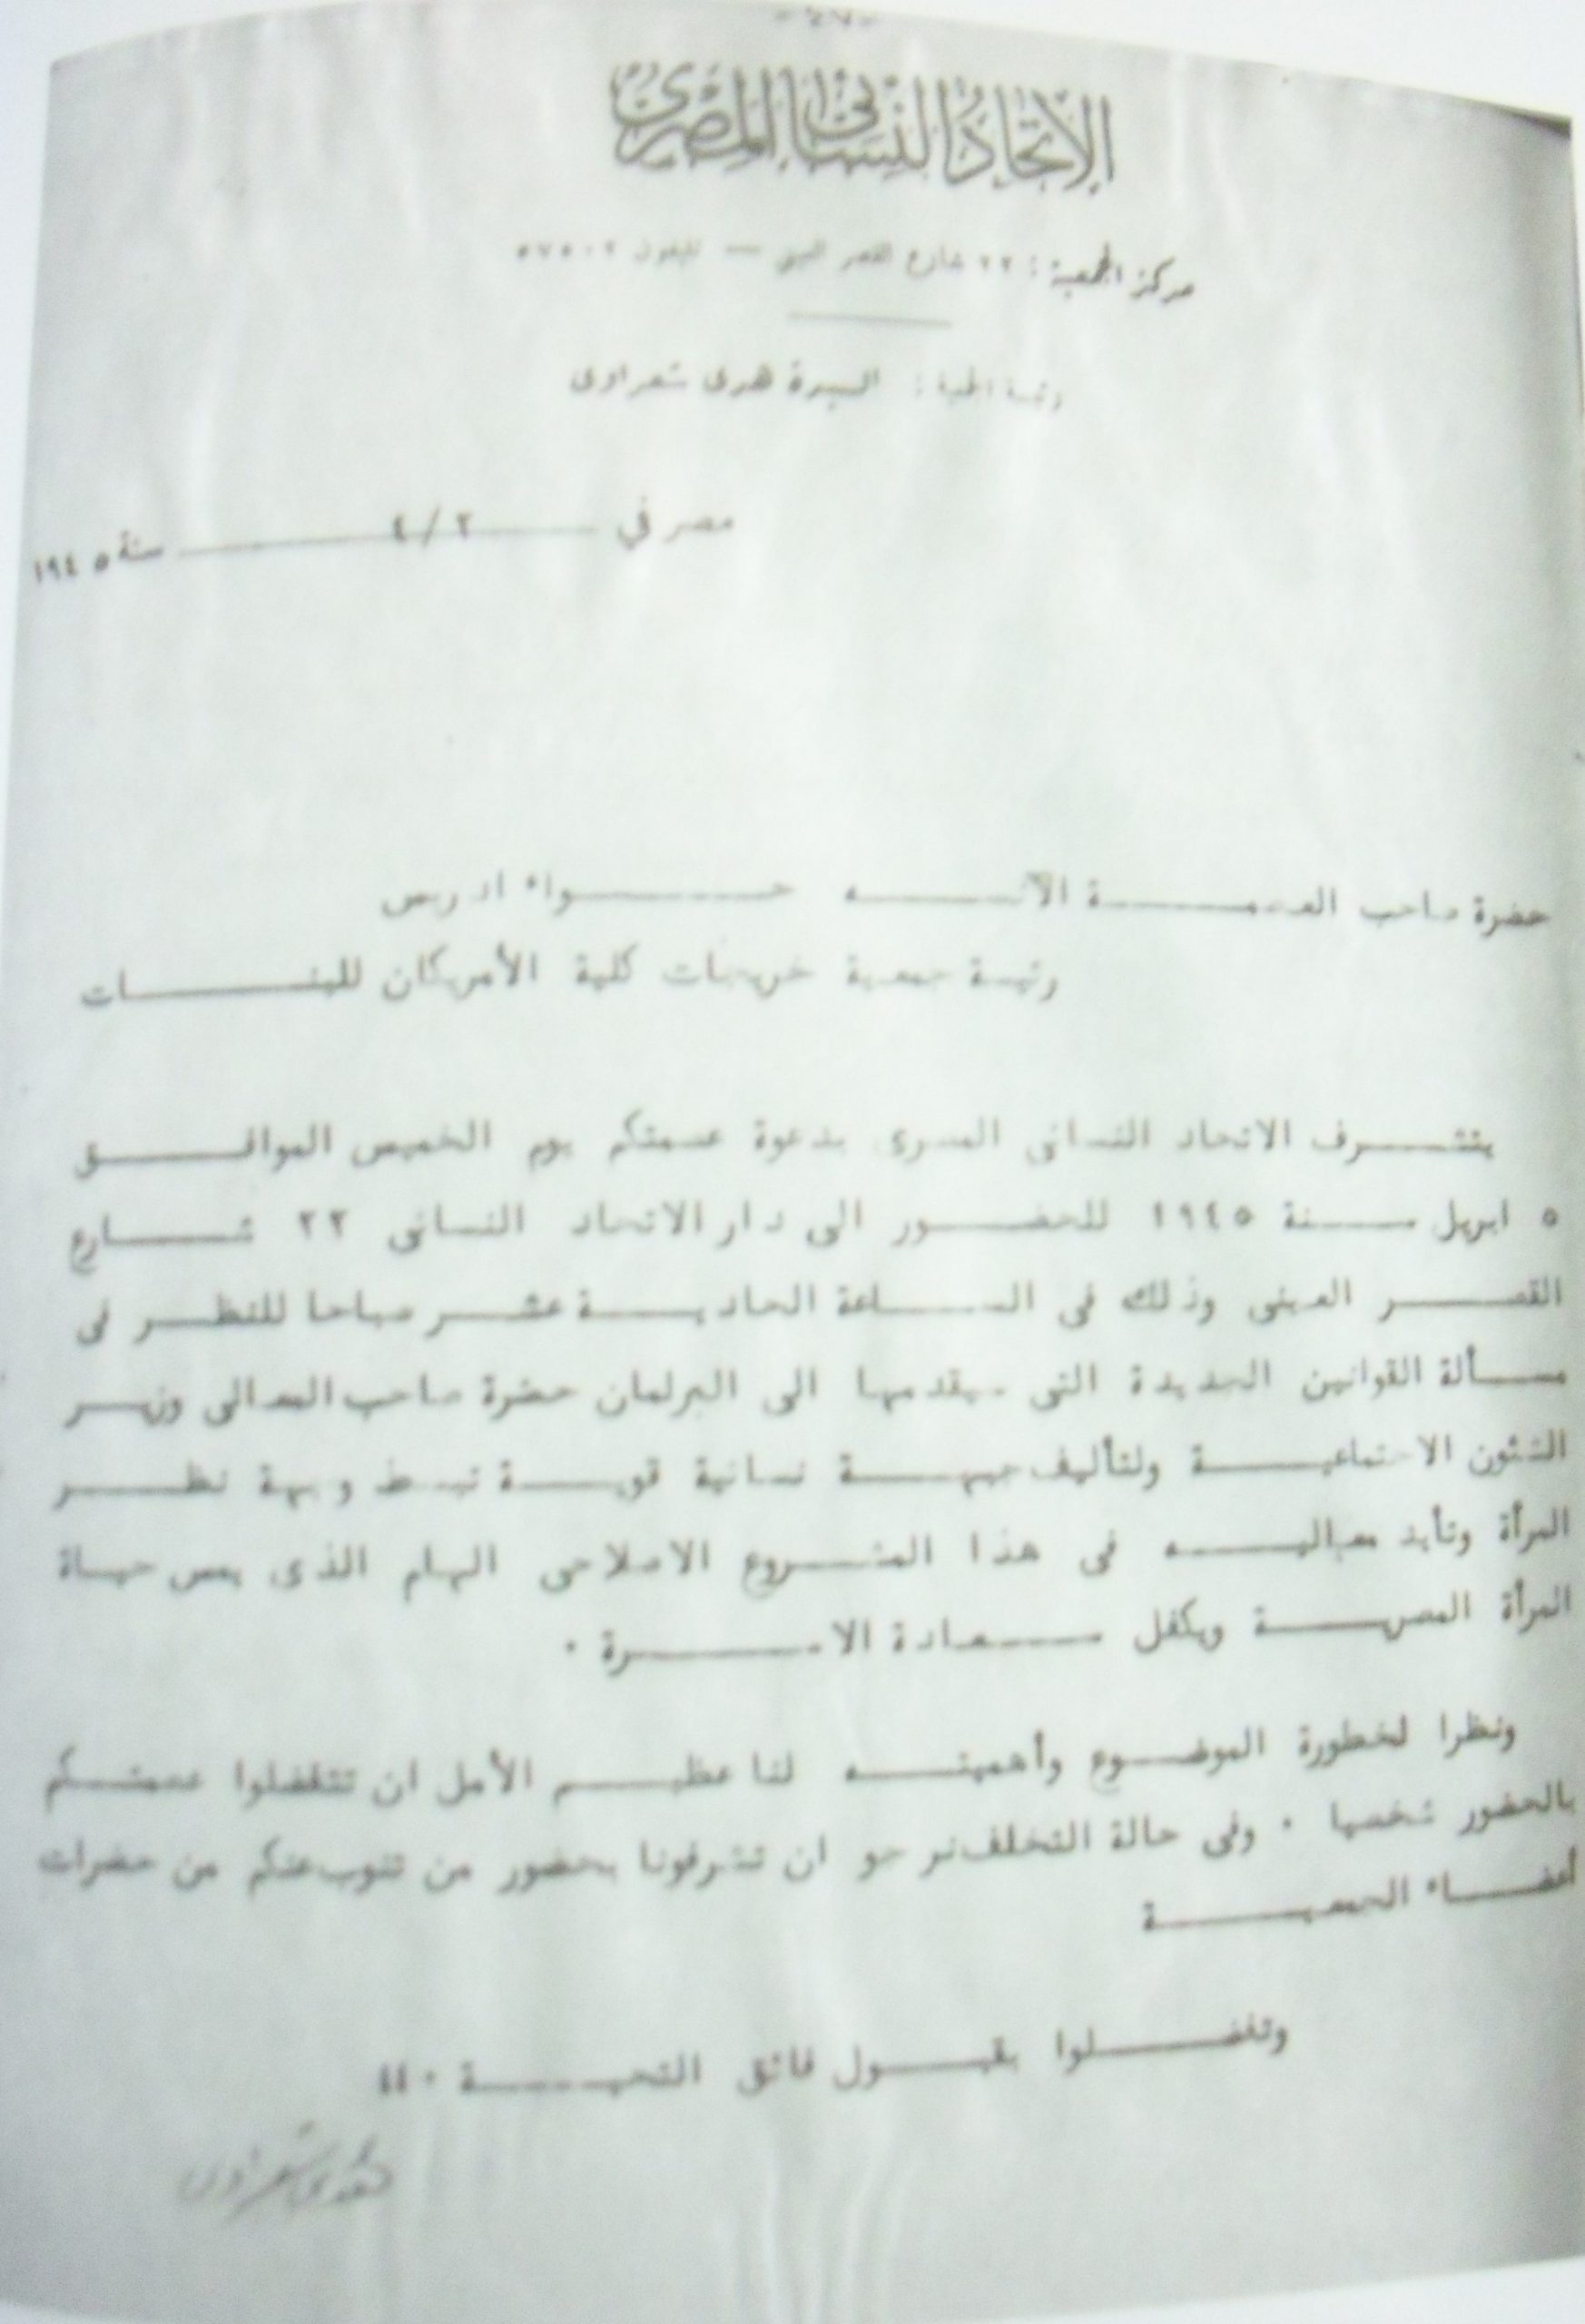 الاتحاد النسائى المصرى
مركز الجمعية : ٢٢ شارع القصر العينى — تليفون ٥٧٥٠٢
السيدة هدى شعراوى
مصر في ٢ / ٤ سنة ١٩٤٥
حضرة صاحب العصمة الآنسه حواء ادريس
رئيسة جمعية خريجات كلية الأمريكان للبنات
يتشرف الاتحاد النسائى المصرى بدعوة عصمتكم يوم الخميس الموافق
٥ ابريل سنة ١٩٤٥ للحضور الى دار الاتحاد النسائى ٢٢ شارع
القصر العينى وذلك فى الساعة الحادية عشر صباحا للنظر فى
مسألة القوانين الجديدة التى سيقدمها الى البرلمان حضرة صاحب المعالى وزير
الشئون الاجتماعية ولتأليف جبهة نسائية قوية تبسط وجهة نظر
المرأة وتأيد معاليه فى هذا المشروع الاصلاحى الهام الذى يمس حياة
المرأة المصرية ويكفل سعادة الاسرة ٠
ونظرا لخطورة الموضوع وأهميته لنا عظيم الأمل ان تتفضلوا عصمتكم
بالحضور شخصيا ٠ وفى حالة التخلف نرجو ان تشرفونا بحضور من تنوب عنكم من حضرات
أعضاء الجمعية
وتفضلوا بقبول فائق التحية ٠
هدى شعراوى